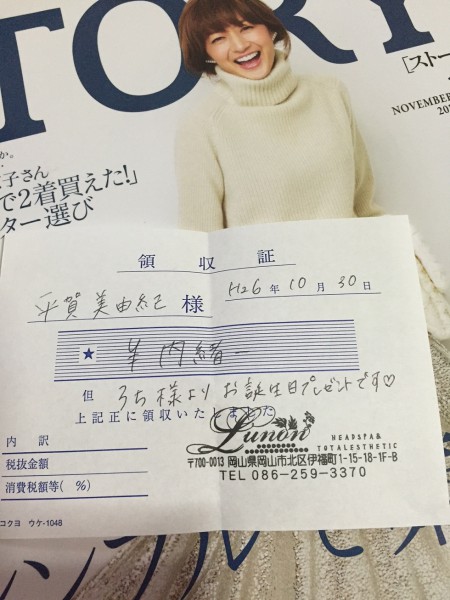 TORY
[ストー
NOVEMBER
か。
子さん
で2着買えた!」
ター選び
領収証
平賀美由紀 様 H26年10月30日
★
但 うち様よりお誕生日プレゼントです♡
上記正に領収いたしました
Lunon
HEADSPA&
TOTALESTHETIC
〒700-0013 岡山県岡山市北区伊福町1-15-18-1F-B
TEL 086-259-3370
内訳
税抜金額
消費税額等( %)
コクヨ ウケ-1048